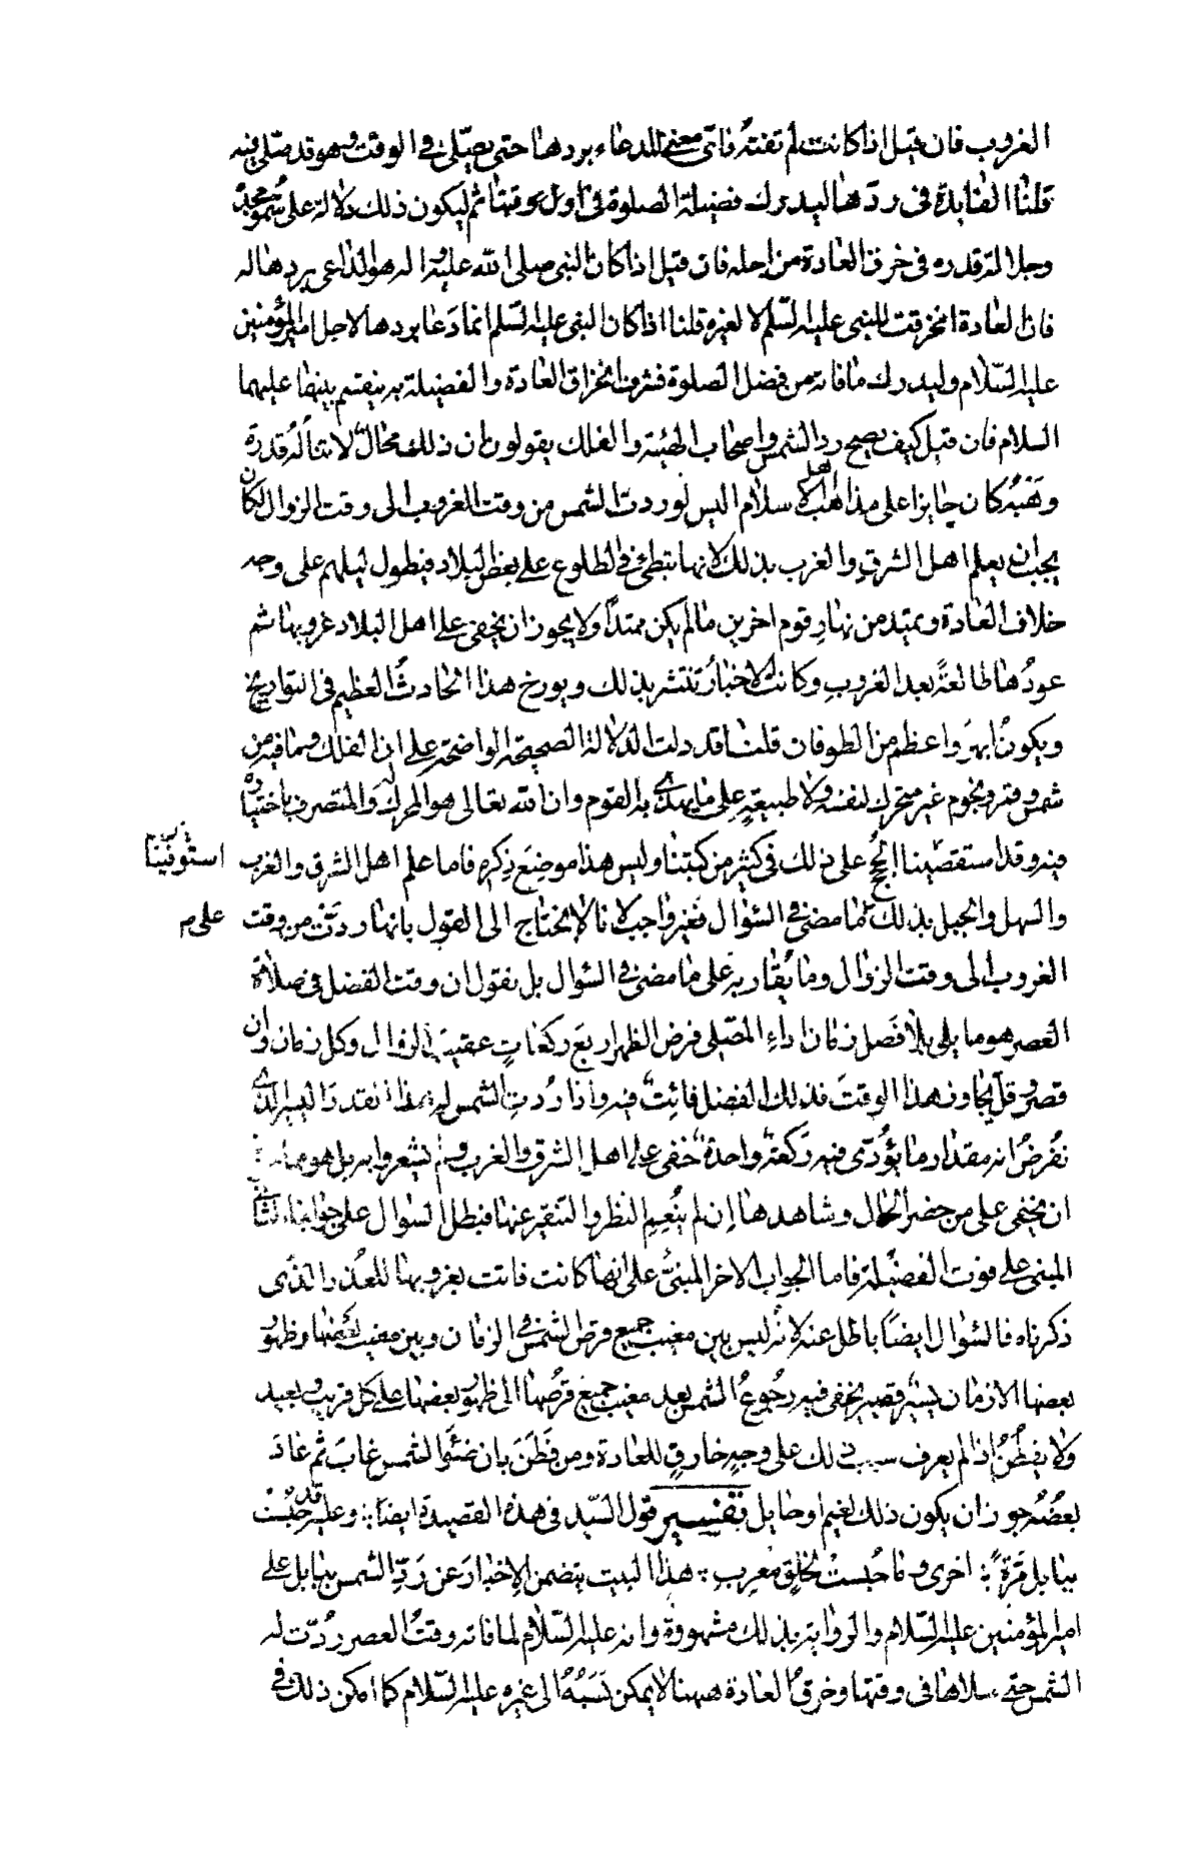 الغروب فان قيل اذا كانت لم تفته فاىّ معنى للدعاء بردها حتى يصلّى فى الوقت وهو قد صلّى فيه
قلنا الفايدة فى ردّها ليدرك فضيلة الصلوة فى اول وقتها ثم ليكون ذلك دلالة على سموّ مجده
وجلالة قدره فى خرق العادة من اجله فان قيل اذا كان النبى صلى الله عليه واله هو الداعى بردها له
فان العادة انخرقت للنبى عليه السّلم لا لغيره قلنا اذا كان النبى عليه السّلم انما دَعا بردها لاجل امير المؤمنين
عليه السّلام وليدرك ما فاته من فضل الصلوة فشرف انخراق العادة والفضيلة به ينقسم بينهما عليهما
السلام فان قيل كيف يصح رد الشمس واصحاب الهيئة والفلك يقولون ان ذلك محالٌ لا تناله قدرة
وهَبْهُ كان جايزا على مذاهب اهل الاسلام اليس لو ردت الشمس من وقت الغروب الى وقت الزوال لكان
يجب ان يعلم اهل الشرق والغرب بذلك لانها تبطئ فى الطلوع على بعض البلاد فيطول ليلهم على وجه
خلاف العادة ويمتد من نهار قوم اخرين ما لم يكن ممتدًا ولا يجوز ان يخفى على اهل البلاد غروبها ثم
عودُها طالعةً بعد الغروب وكانت الاخبارُ تنتشر بذلك ويورخ هذا الحادثُ العظيم فى التواريخ
ويكونُ ابهرَ واعظم من الطوفان قلنا قد دلت الدلالة الصحيحة الواضحة على ان الفلك وما فيه من
شمس وقمر ونجوم غير متحرك لنفسه ولا طبيعةٍ على ما يهذى به القوم وان الله تعالى هو المحرك له والمتصرف باختياره
فيه وقد استقصينا الحجج على ذلك فى كثير من كتبنا وليس هذا موضعَ ذكره فاما علم اهل الشرق والغرب استوفينا
والسهل والجبل بذلك على ما مضى فى السؤال فغير واجب لانا لا نحتاج الى القول بانها ردَتْ من وقت على م
الغروب الى وقت الزوال وما يُقاربه على ما مضى فى السئوال بل نقول ان وقت الفضل فى صلاة
العصر هو ما يلى بلا فصل زمان اداءِ المصّلى فرض الظهر اربعَ ركعاتٍ عقيب الزوال وكل زمان وان
قصر وقل يجاوز هذا الوقتَ فذلك الفضل فائِتٌ فيه واذا رُدتِ الشمس له هذا القدر اليسير الذى
نفرضُ انه مقدار ما يؤدّى فيه ركعة واحدة خفى على اهل الشرق والغرب ولم يشعروا به بل هو مما
ان يخفى على من حضر الحال وشاهدها إن لم يُنعِم النظر والتنقير عنها فبطل السّوال على جوابنا الثانى
المبنى على فوت الفضيلة فاما الجواب الاخر المبنىُّ على انها كانت فاتت بغروبها للعُذر الذى
ذكرناه فالسئوال ايضًا باطل عنه لانّه ليس بين مغيب جميع قرص الشمس فى الزمان وبين مغيب بعضها وظهور
بعضها الا زمان يسير قصير يخفى فيه رجُوعُ الشمس بعد مغيب جميع قرصُها الى ظهور بعضها على كل قريب وبعيد
ولا يفطُن إذا لم يعرف سبب ذلك على وجهٍ خارقٍ للعادة ومن فَطَن بان ضوَّ الشمس غابَ ثم عاد
بعضُه جوز ان يكون ذلك لغيم او حايل تفسير قول السّيد فى هذه القصيدة ايضا ؛ وعليه قد حُبِسَتْ
ببابل مَرّةً ؛ اخرى وما حُبست لخلقٍ مُعرِبِ ؛ هذا البيت يتضمن الاخبارَ عن رَدّ الشمس ببابل على
امير المؤمنين عليه السّلام والرواية بذلك مشهورة وانه عليه السّلام لما فاته وقتُ العصر رُدّت له
الشمس حتى صلاها فى وقتها وخرقُ العادة ههنا لا يمكن نَسَبُهُ الى غيره عليه السّلام كما امكن ذلك فى